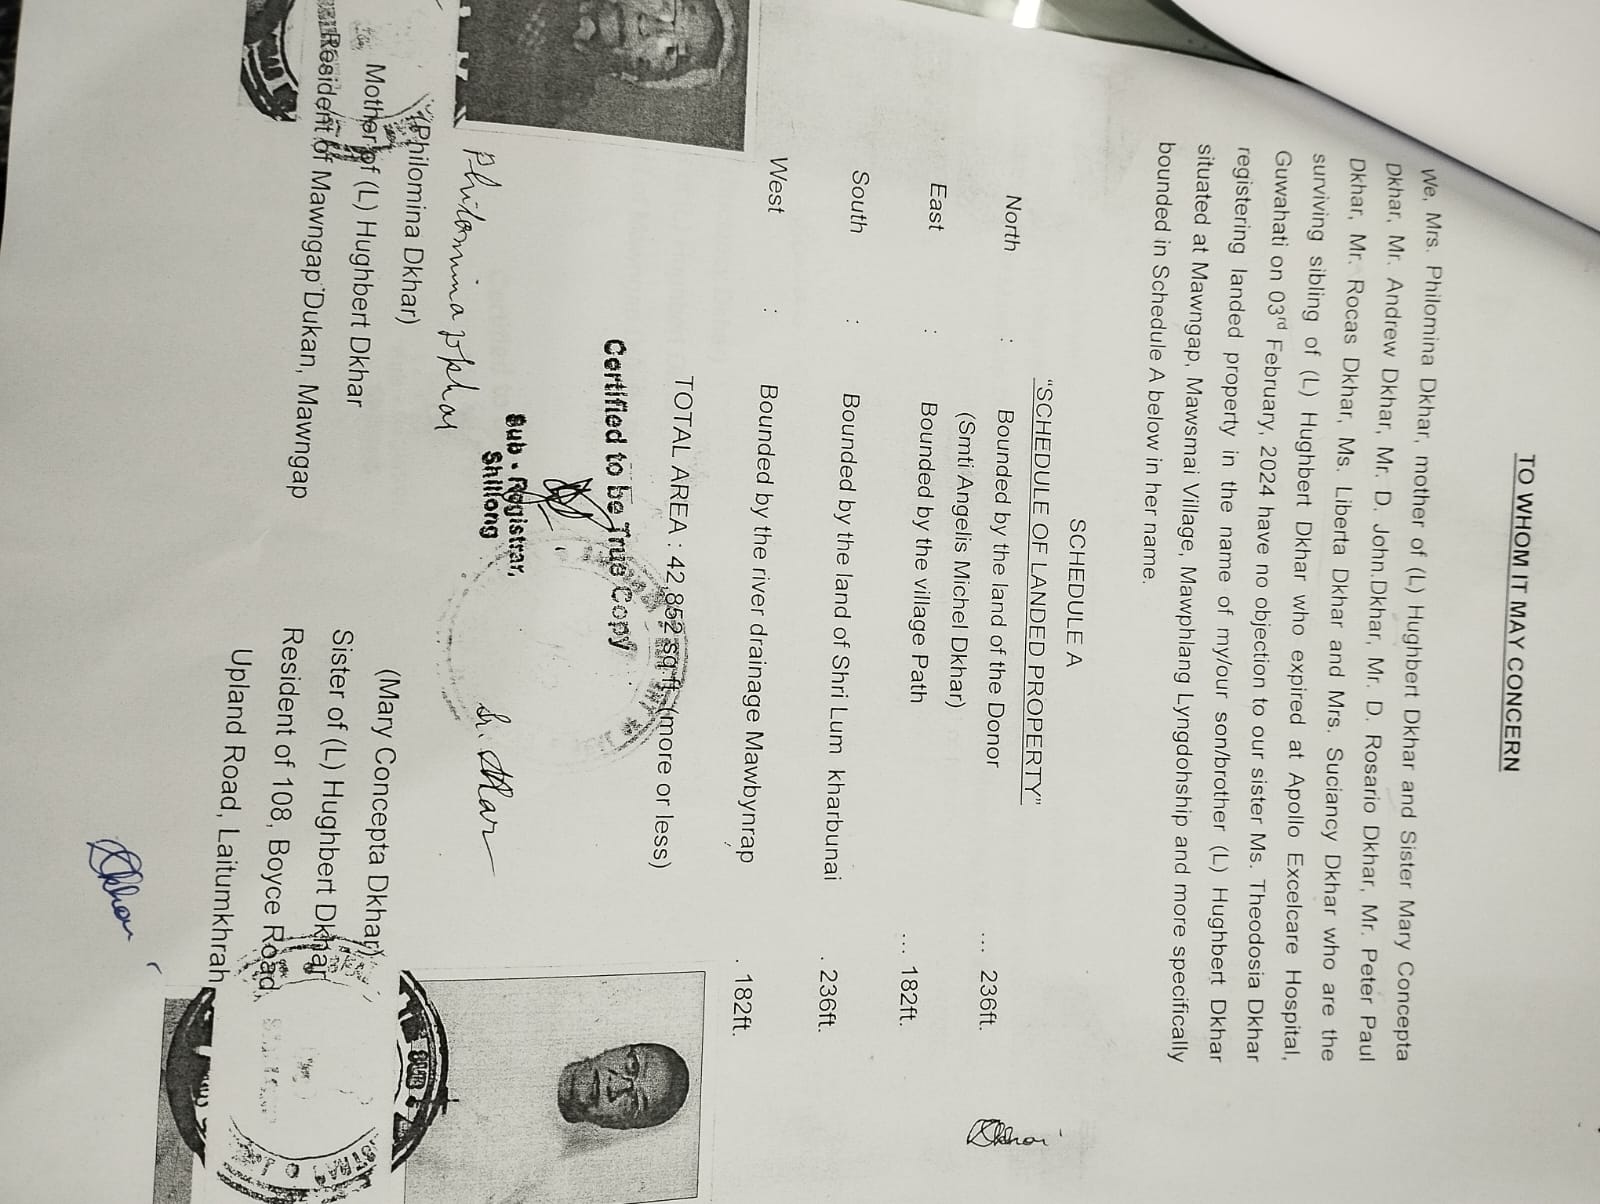 TO WHOM IT MAY CONCERN
We, Mrs. Philomina Dkhar, mother of (L) Hughbert Dkhar and Sister Mary Concepta
Dkhar, Mr. Andrew Dkhar, Mr. D. John.Dkhar, Mr. D. Rosario Dkhar, Mr. Peter Paul
Dkhar, Mr. Rocas Dkhar, Ms. Liberta Dkhar and Mrs. Suciancy Dkhar who are the
surviving sibling of (L) Hughbert Dkhar who expired at Apollo Excelcare Hospital,
Guwahati on 03rd February, 2024 have no objection to our sister Ms. Theodosia Dkhar
registering landed property in the name of my/our son/brother (L) Hughbert Dkhar
situated at Mawngap, Mawsmai Village, Mawphlang Lyngdohship and more specifically
bounded in Schedule A below in her name.
SCHEDULE A
"SCHEDULE OF LANDED PROPERTY"
North : Bounded by the land of the Donor ... 236ft.
(Smti Angelis Michel Dkhar)
East : Bounded by the village Path ... 182ft.
South : Bounded by the land of Shri Lum kharbunai . 236ft.
West : Bounded by the river drainage Mawbynrap . 182ft.
TOTAL AREA : 42,852 sq.ft. (more or less)
Certified to be True Copy
Sub - Registrar,
Shillong
Philomina Dkhar
(Philomina Dkhar)
Mother of (L) Hughbert Dkhar
Resident of Mawngap Dukan, Mawngap
(Mary Concepta Dkhar)
Sister of (L) Hughbert Dkhar
Resident of 108, Boyce Road,
Upland Road, Laitumkhrah
Dkhar